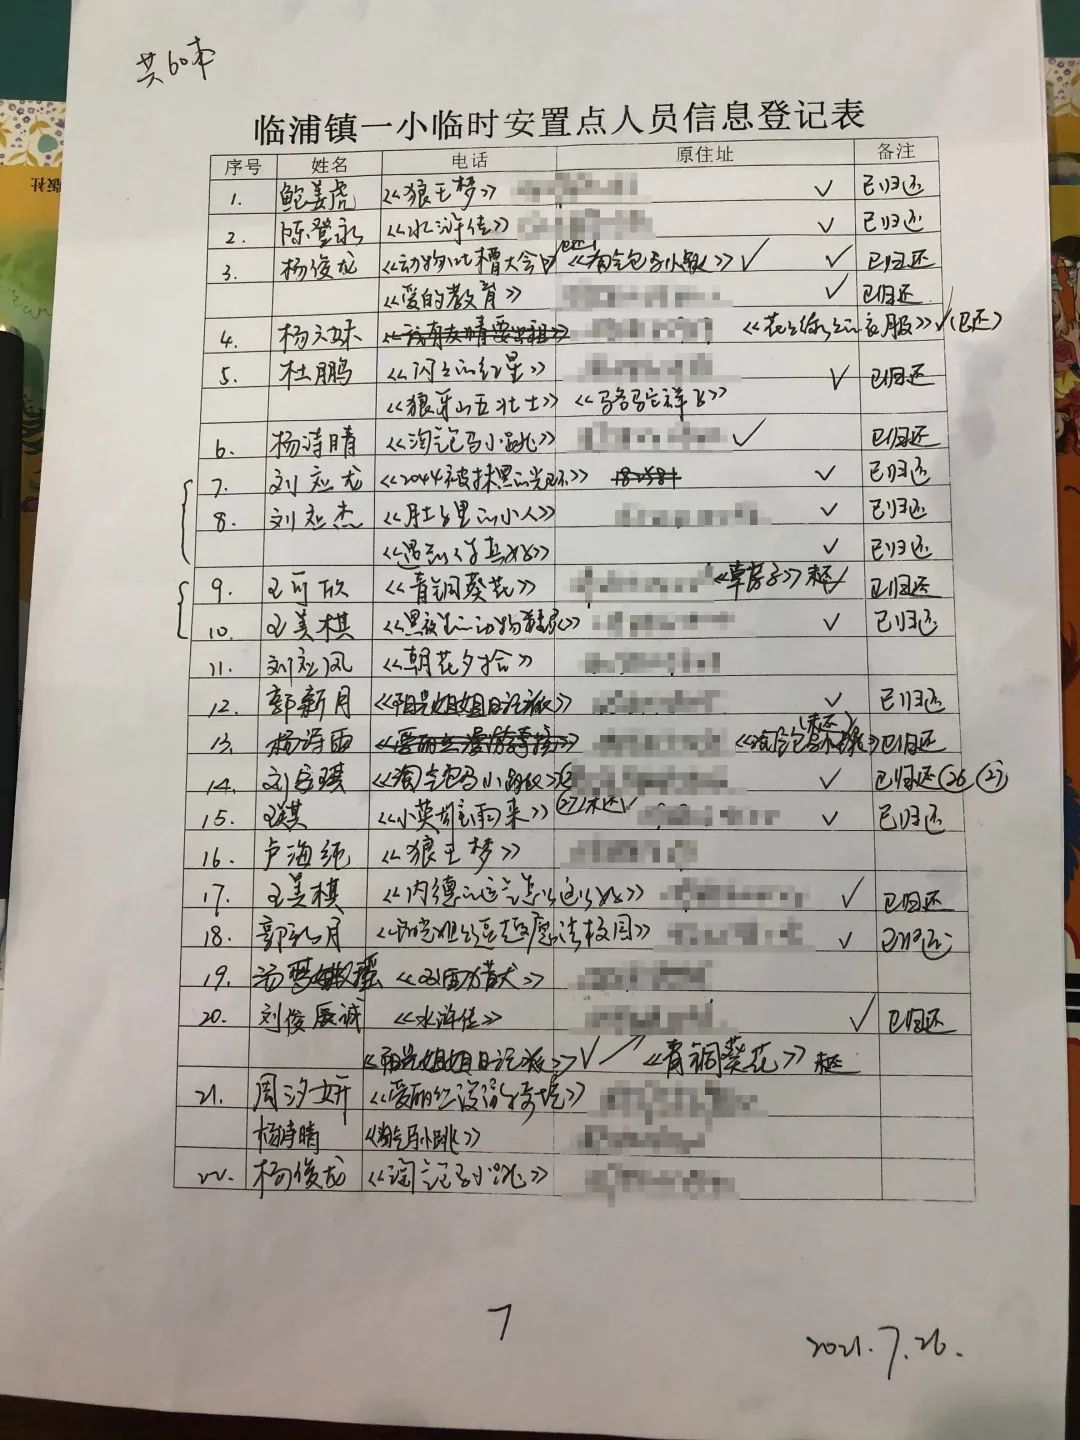 共60本
临浦镇一小临时安置点人员信息登记表
序号 姓名 电话 原住址 备注
1. 鲍姜虎 《狼王梦》 ✓ 已归还
2. 陈登永 《水浒传》 ✓ 已归还
3. 杨俊龙 《动物吐槽大会》 《淘气包马小跳》 ✓ ✓ 已归还
《爱的教育》 ✓ 已归还
4. 杨 《花 衣服》 ✓ (已还)
5. 杜鹏 《闪闪的红星》 ✓ 已归还
《狼牙山五壮士》 《骆驼祥子》
6. 杨诗晴 《淘气包马小跳》 ✓ 已归还
7. 刘 龙 《2044被抹黑的 》 ✓ 已归还
8. 刘 杰 《肚子里的小人》 ✓ 已归还
《遇到 真好》 ✓ 已归还
9. 王可欣 《青铜葵花》 《草房子》 未还 ✓ 已归还
10. 王美棋 《黑夜里的动物 》 ✓ 已归还
11. 刘 凤 《朝花夕拾》
12. 郭新月 《阳光姐姐日记派》 ✓ 已归还
(未还)
13. 杨诗雨 《淘气包马小跳》 已归还
14. 刘 琪 《淘气包马小跳 》 ✓ 已归还 (26) (27)
15. 《小英雄雨来》 (27)未还 ✓ ✓ 已归还
16. 卢海纯 《狼王梦》
17. 王美棋 《内德的运气怎么这么好》 ✓ 已归还
18. 郭 月 ✓ 已归还
19. 汤 《双面猎犬》
20. 刘俊辰诚 《水浒传》 ✓ 已归还
《阳光姐姐日记派》 ✓ 《青铜葵花》 未还
21. 周汐妍 《爱丽丝漫游奇境》
杨诗晴 《淘气马小跳》
22. 杨俊龙 《淘气包马小跳》
7
2021.7.26.